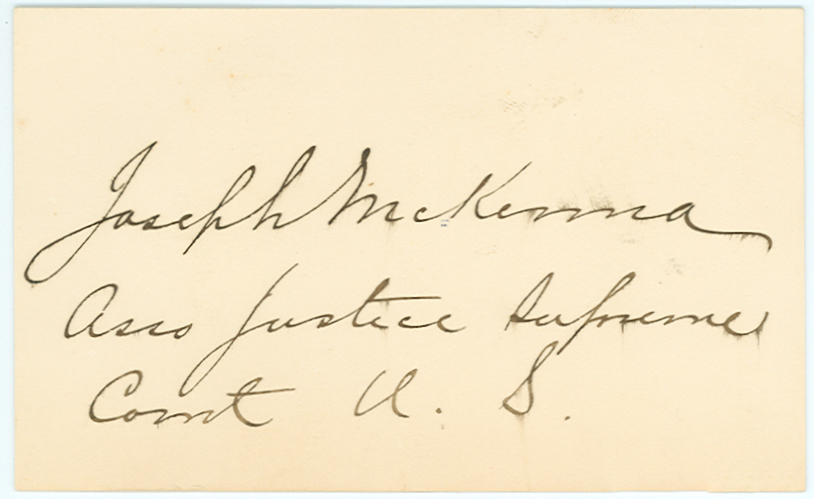 Joseph McKenna
Asso Justice Supreme
Court U. S.